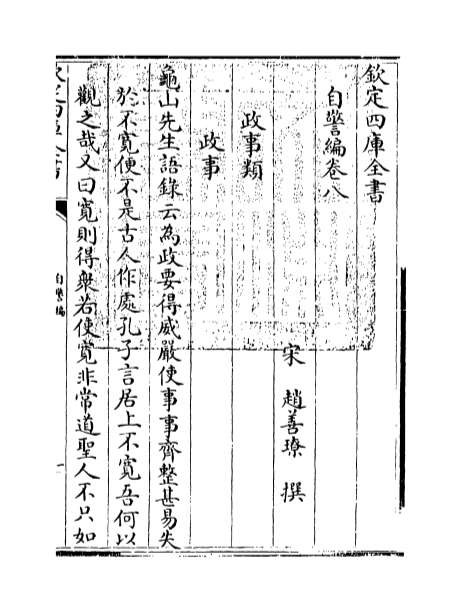 欽定四庫全書
自警編卷八
宋 趙善璙 撰
政事類
政事
龜山先生語錄云為政要得威嚴使事事齊整甚易失
於不寬便不是古人作處孔子言居上不寬吾何以
觀之哉又曰寬則得衆若使寬非常道聖人不只如
自警編
一